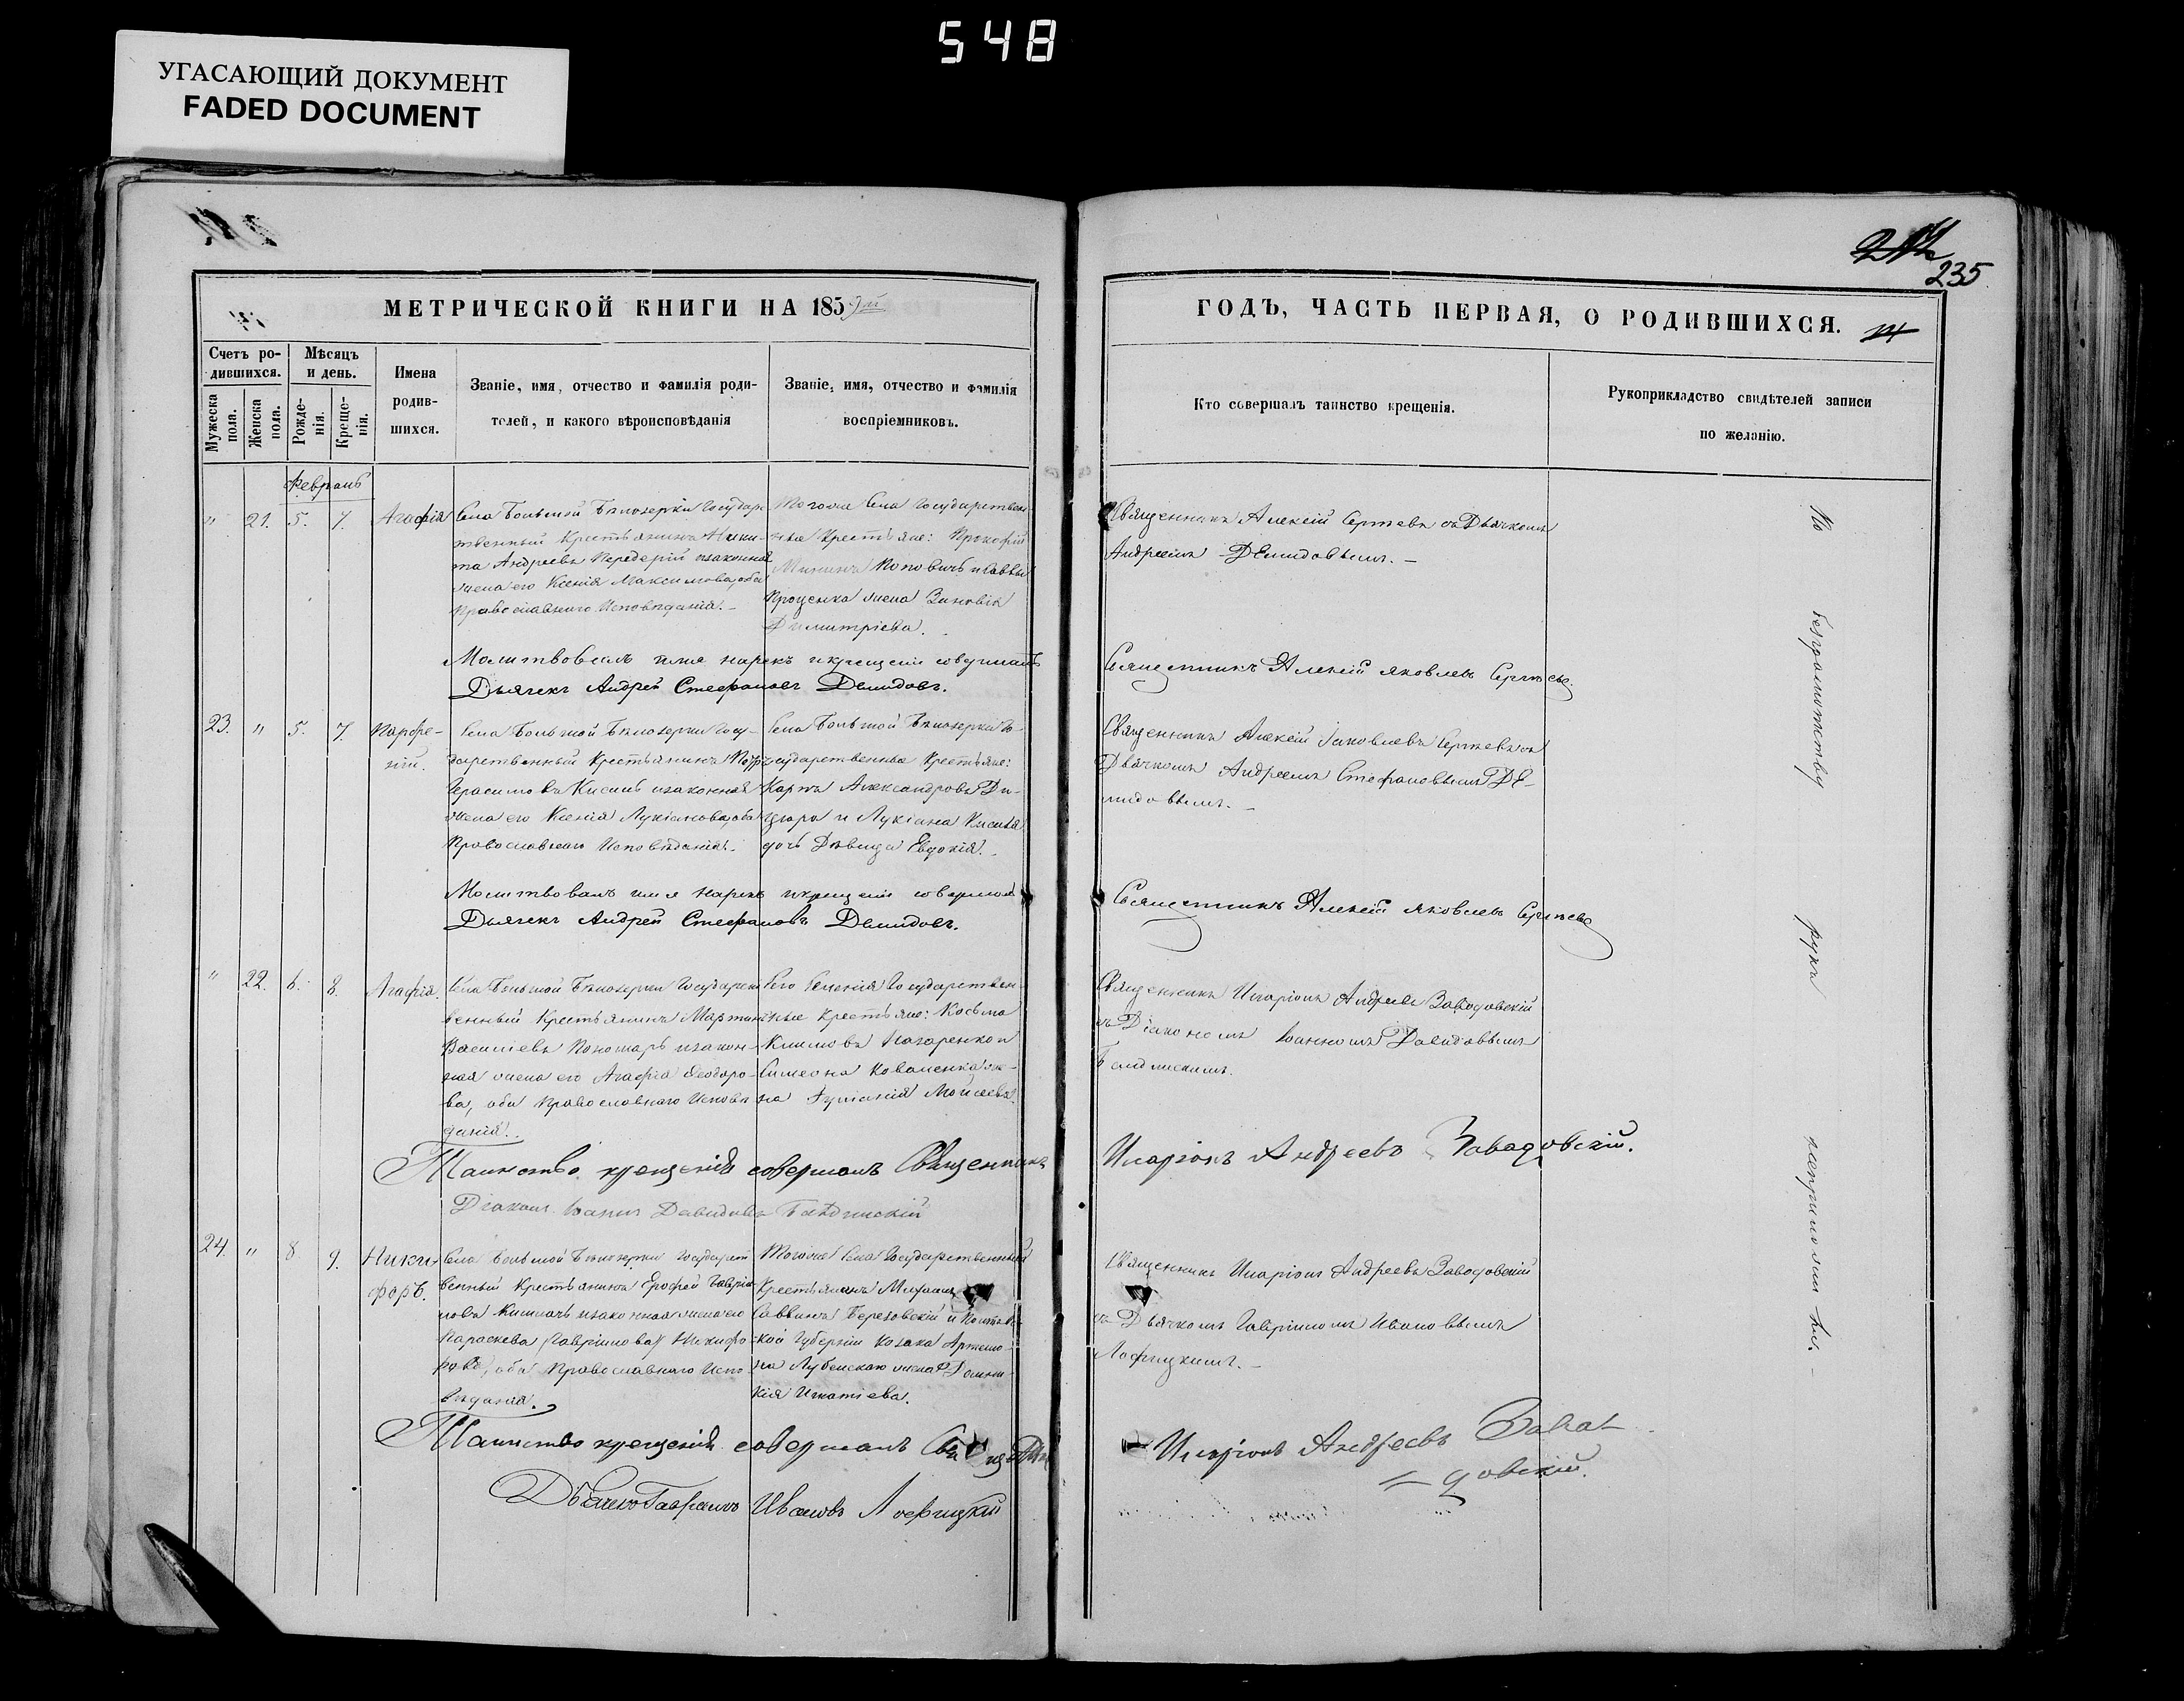 548
УГАСАЮЩИЙ ДОКУМЕНТ
FADED DOCUMENT
235
МЕТРИЧЕСКОЙ КНИГИ НА 185
Счетъ ро-
дившихся.
Мужеска пола.
Женска пола.
Мѣсяцъ и день.
Рожде-
нія.
Креще-
нія.
Имена
родив-
шихся.
Званіе, имя, отчество и фамилія роди-
телей, и какого вѣроисповѣданія
Званіе, имя, отчество и фамилія
воспріемниковъ.
ГОДЪ, ЧАСТЬ ПЕРВАЯ, О РОДИВШИХСЯ.
Кто совершалъ таинство крещенія.
Рукоприкладство свидѣтелей записи
по желанію.
Февраль
" 21. 5. 7. Агафія
Села Большой Бѣлозерки Государ-
ственный Крестьянинъ Ники-
та Андреевъ Передерій изаконная
жена его Ксенія Максимова, оба
Православнаго Исповѣданія. –
Тогоже Села Государствен-
ные Крестьяне: Прокофій
Поповичъ и Саввы
Проценка жена Зиновія
Димитріева.
Священникъ Алексій Сергѣевъ съ Дьячкомъ
Андреемъ Демидовымъ. –
Молитвовалъ имя нарекъ и крещеніе совершалъ
Священникъ Алексій Яковлевъ Сергѣевъ.
Дьячекъ Андрей Стефановъ Демидовъ.
23. " 5. 7. Парфе-
ній.
Села Большой Бѣлозерки Госу-
дарственный Крестьянинъ
Герасимовъ Кисиль изаконная
жена его Ксенія Лукіанова, оба
Православнаго Исповѣданія. –
Села Большой Бѣлозерки Го-
сударственные Крестьяне:
Карпъ Александровъ Ди-
и Лукіана Кисиля
дочь Дѣвица Евдокія. –
Священникъ Алексій Іаковлевъ Сергѣевъ съ
Дьячкомъ Андреемъ Стефановымъ Де-
мидовымъ. –
Молитвовалъ имя нарекъ и крещеніе совершалъ
Священникъ Алексій Яковлевъ Сергѣевъ
Дьячекъ Андрей Стефановъ Демидовъ.
" 22. 6. 8. Агафія.
Села Большой Бѣлозерки Государст-
венный Крестьянинъ Мартинъ
Васильевъ Пономарь изакон-
ная жена его Агафія Ѳеодоро-
ва, оба Православнаго Исповѣ-
данія.
Его Селенія Государствен-
ные Крестьяне: Косьма
Климовъ Назаренко и
Симеона Коваленка же-
на Іуліанія Мойсеева.
Священникъ Иларіонъ Андреевъ Завадовскій
съ Діакономъ Іоанномъ Давидовымъ
Таинство крещенія совершалъ Священникъ
Иларіонъ Андреевъ Завадовскій.
Діаконъ Іоаннъ Давидовъ
24. " 8 9. Ники-
форъ.
Села Большой Бѣлозерки Государст-
венный Крестьянинъ Ерофей Гавріи-
ловъ изаконная жена его
Параскева (Гавріилова) Никифо-
рова, оба Православнаго Испо-
вѣданія.
Тогоже Села Государственный
Крестьянинъ Михаилъ
Саввинъ Березовскій и Полтавс-
кой Губерніи Козака Артемо-
на Лубенскаго жена Домни-
кія Игнатіева.
Священникъ Иларіонъ Андреевъ Завадовскій
съ Дьячкомъ Гавріиломъ Ивановымъ
Лофицкимъ. –
Таинство крещенія совершалъ
Иларіонъ Андреевъ Завад-
= довскій.
Дьячекъ Гавріилъ Ивановъ Лофицкій
По безграмотству рукъ неприложили. –